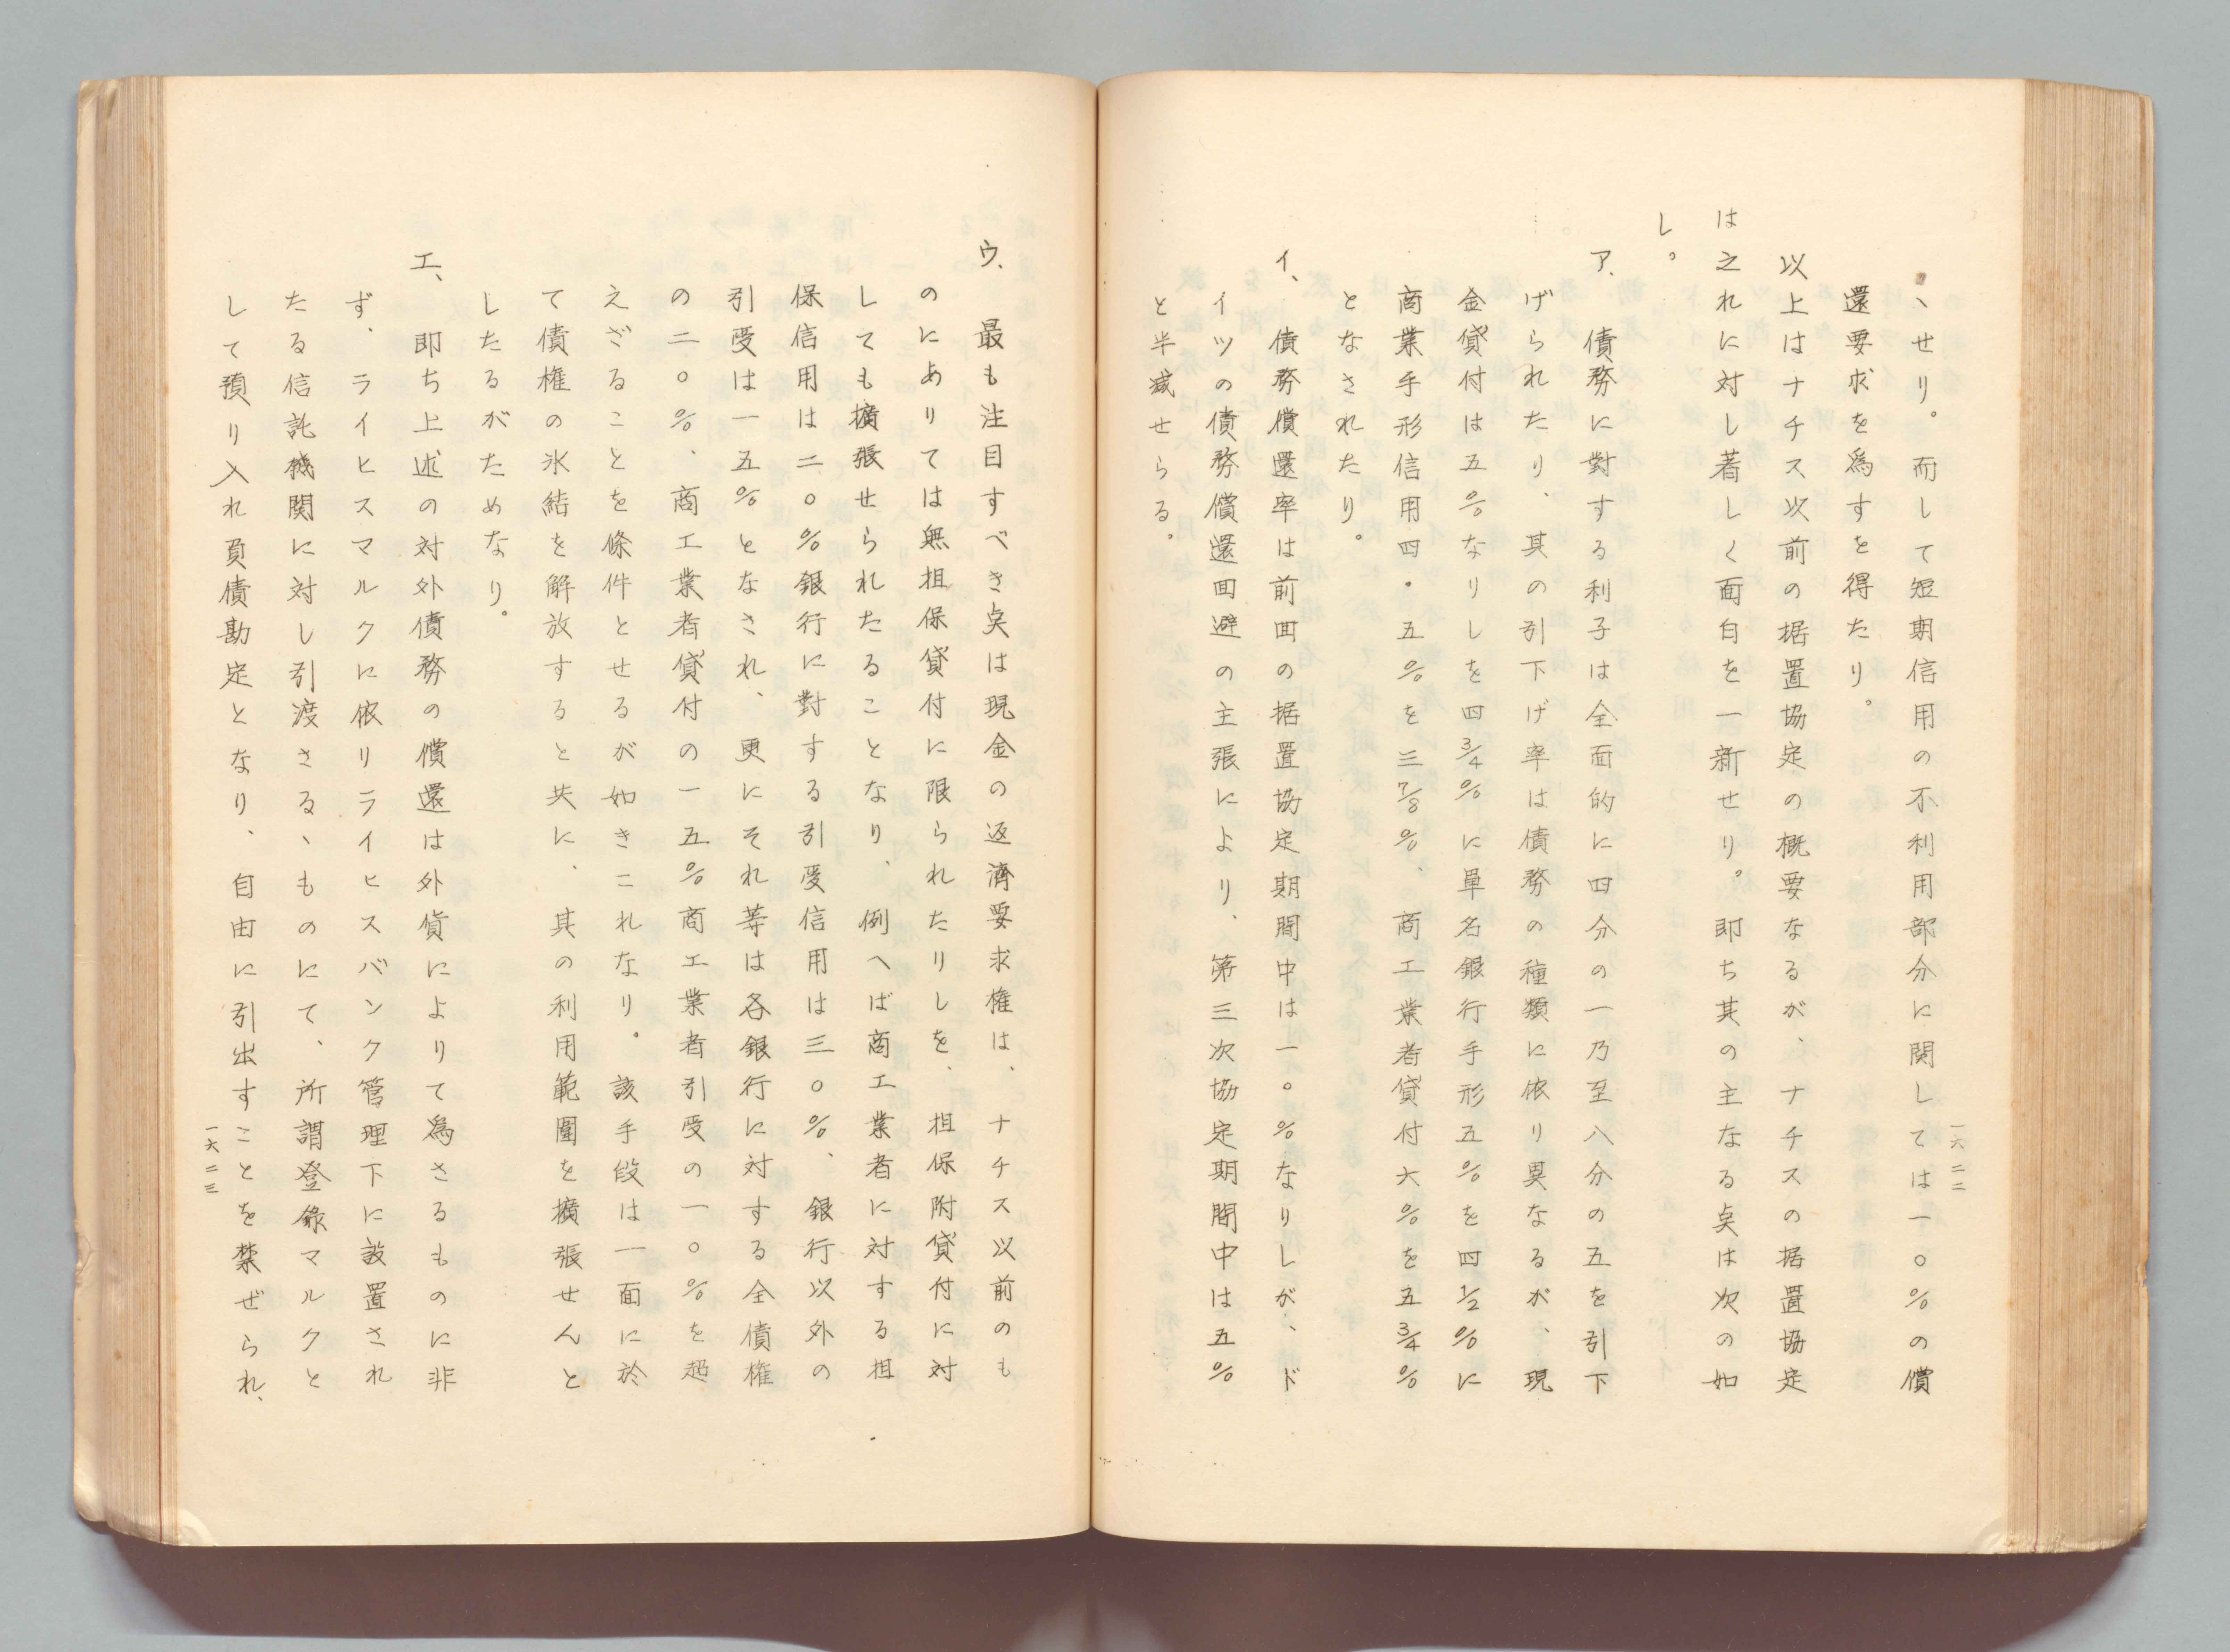 一六二二
ヽせり。而して短期信用の不利用部分に関しては一〇％の償
還要求を爲すを得たり。
以上はナチス以前の据置協定の概要なるが、ナチスの据置協定
は之れに対し著しく面目を一新せり。即ち其の主なる奌は次の如
し。
ア、債務に對する利子は全面的に四分の一乃至八分の五を引下
げられたり、其の引下げ率は債務の種類に依り異なるが、現
金貸付は五％なりしを四3/4％に單名銀行手形五％を四1/2％に
商業手形信用四・五％を三7/8％、商工業者貸付六％を五3/4％
となされたり。
イ、債務償還率は前回の据置協定期間中は一〇％なりしが、ド
イツの債務償還回避の主張により、第三次協定期間中は五％
と半減せらる。
ウ、最も注目すべき奌は現金の返濟要求権は、ナチス以前のも
のにありては無担保貸付に限られたりしを、担保附貸付に対
しても擴張せられたることなり、例へば商工業者に対する担
保信用は二〇％銀行に對する引受信用は三〇％、銀行以外の
引受は一五％となされ、更にそれ等は各銀行に対する全債権
の二〇％、商工業者貸付の一五％商工業者引受の一〇％を超
えざることを條件とせるが如きこれなり。該手段は一面に於
て債権の氷結を解放すると共に、其の利用範圍を擴張せんと
したるがためなり。
エ、即ち上述の対外債務の償還は外貨によりて爲さるものに非
ず、ライヒスマルクに依りライヒスバンク管理下に設置され
たる信託機関に対し引渡さるヽものにて、所謂登錄マルクと
して預り入れ負債勘定となり、自由に引出すことを禁ぜられ、
一六二三